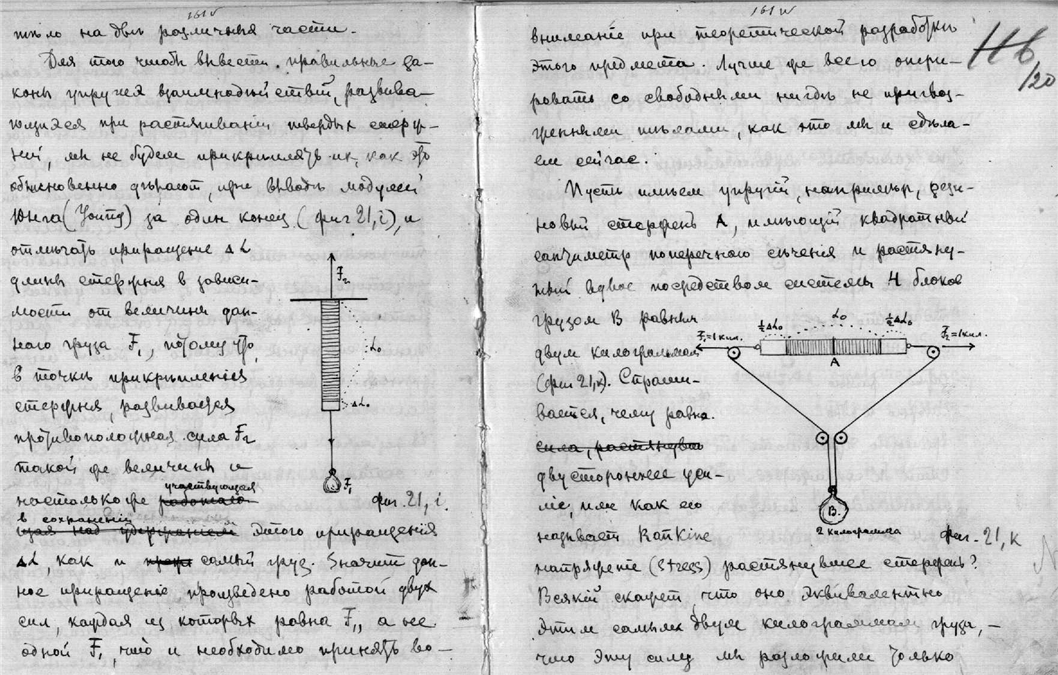 161v
тѣло на двѣ различныя части.
Для того чтобы вывести правильные за-
коны упругихъ взаимнодѣйствій, развива-
ющихся при растягиваніи твердыхъ стерж-
ней, мы не будемъ прикрѣплять ихъ, какъ это
обыкновенно дѣлаютъ, при выводѣ модулей
Юнга (Young) за один конец (фиг 21, i), и
отмѣчать приращеніе ΔL
длины стержня в зависи-
мости от величины дан-
ного груза F₁, потому что,
в точкѣ прикрѣпленія
стержня, развивается
противоположная сила F₂
такой же величины и
настолько же участвующая
в сохраненіи этого приращенія
ΔL, как и самый груз. Значит дан-
ное приращеніе произведено работой двух
сил, каждая из которых равна F₁, а не
одной F₁, что и необходимо принять во-
F₂
L₀
ΔL₀
F₁
фиг. 21, i
161w
116/20
вниманіе при теоретической разработкѣ
этого предмета. Лучше же всего опери-
ровать со свободными нигдѣ не пригвож-
денными тѣлами, как это мы и сдѣла-
ем сейчас.
Пусть имѣем упругій, напримѣр, рези-
новый стержень A, имѣющій квадратный
сантиметр поперечнаго сѣченія и растяну-
тый вдвое посредством системы 4 блоков
грузом B равным
двум килограммам
(фиг 21, к). Спраши-
вается, чему равна
сила, растянувш
двустороннее уси-
ліе, или как его
называет Rankine
напряженіе (stress) растянувшее стержень?
Всякій скажет, что оно эквивалентно
этим самым двум килограммам груза, –
что эту силу мы разложили только
F₁=1 кил.
½ΔL₀
L₀
½ΔL₀
F₂=1 кил.
A
B
2 килограмма
фиг. 21, к